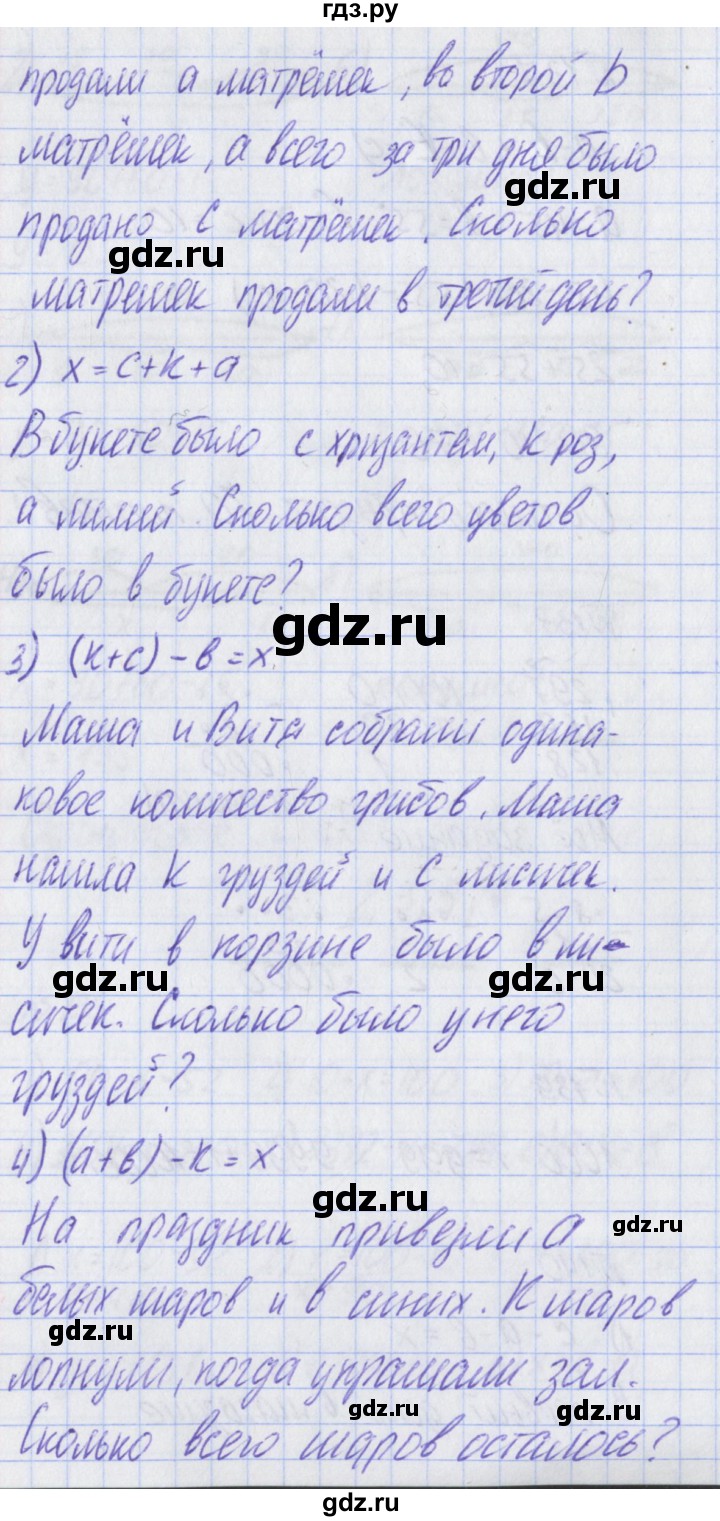 гдз.ру
продали а матрёшек, во второй b
матрёшек, а всего за три дня было
gdz.ru
продано с матрёшек. Сколько
gdz.ru
матрешек продали в третий день?
2) х = с + к + а
В букете было с хризантем, к роз,
а лилий. Сколько всего цветов
было в букете?
gdz.ru
3) (к+с) - в = х.
Маша и Витя собрали одина-
ковое количество грибов. Маша
нашла к груздей и с лисичек.
У Вити в корзине было в ли-
gdz.ru gdz.ru
сичек. Сколько было у него
груздей?
4) (а+в) - к = х
gdz.ru
На праздник привезли а
gdz.ru
белых шаров и в синих. К шаров
gdz.ru
лопнули, когда украшали зал.
gdz.ru gdz.ru
Сколько всего шаров осталось?
gdz.ru